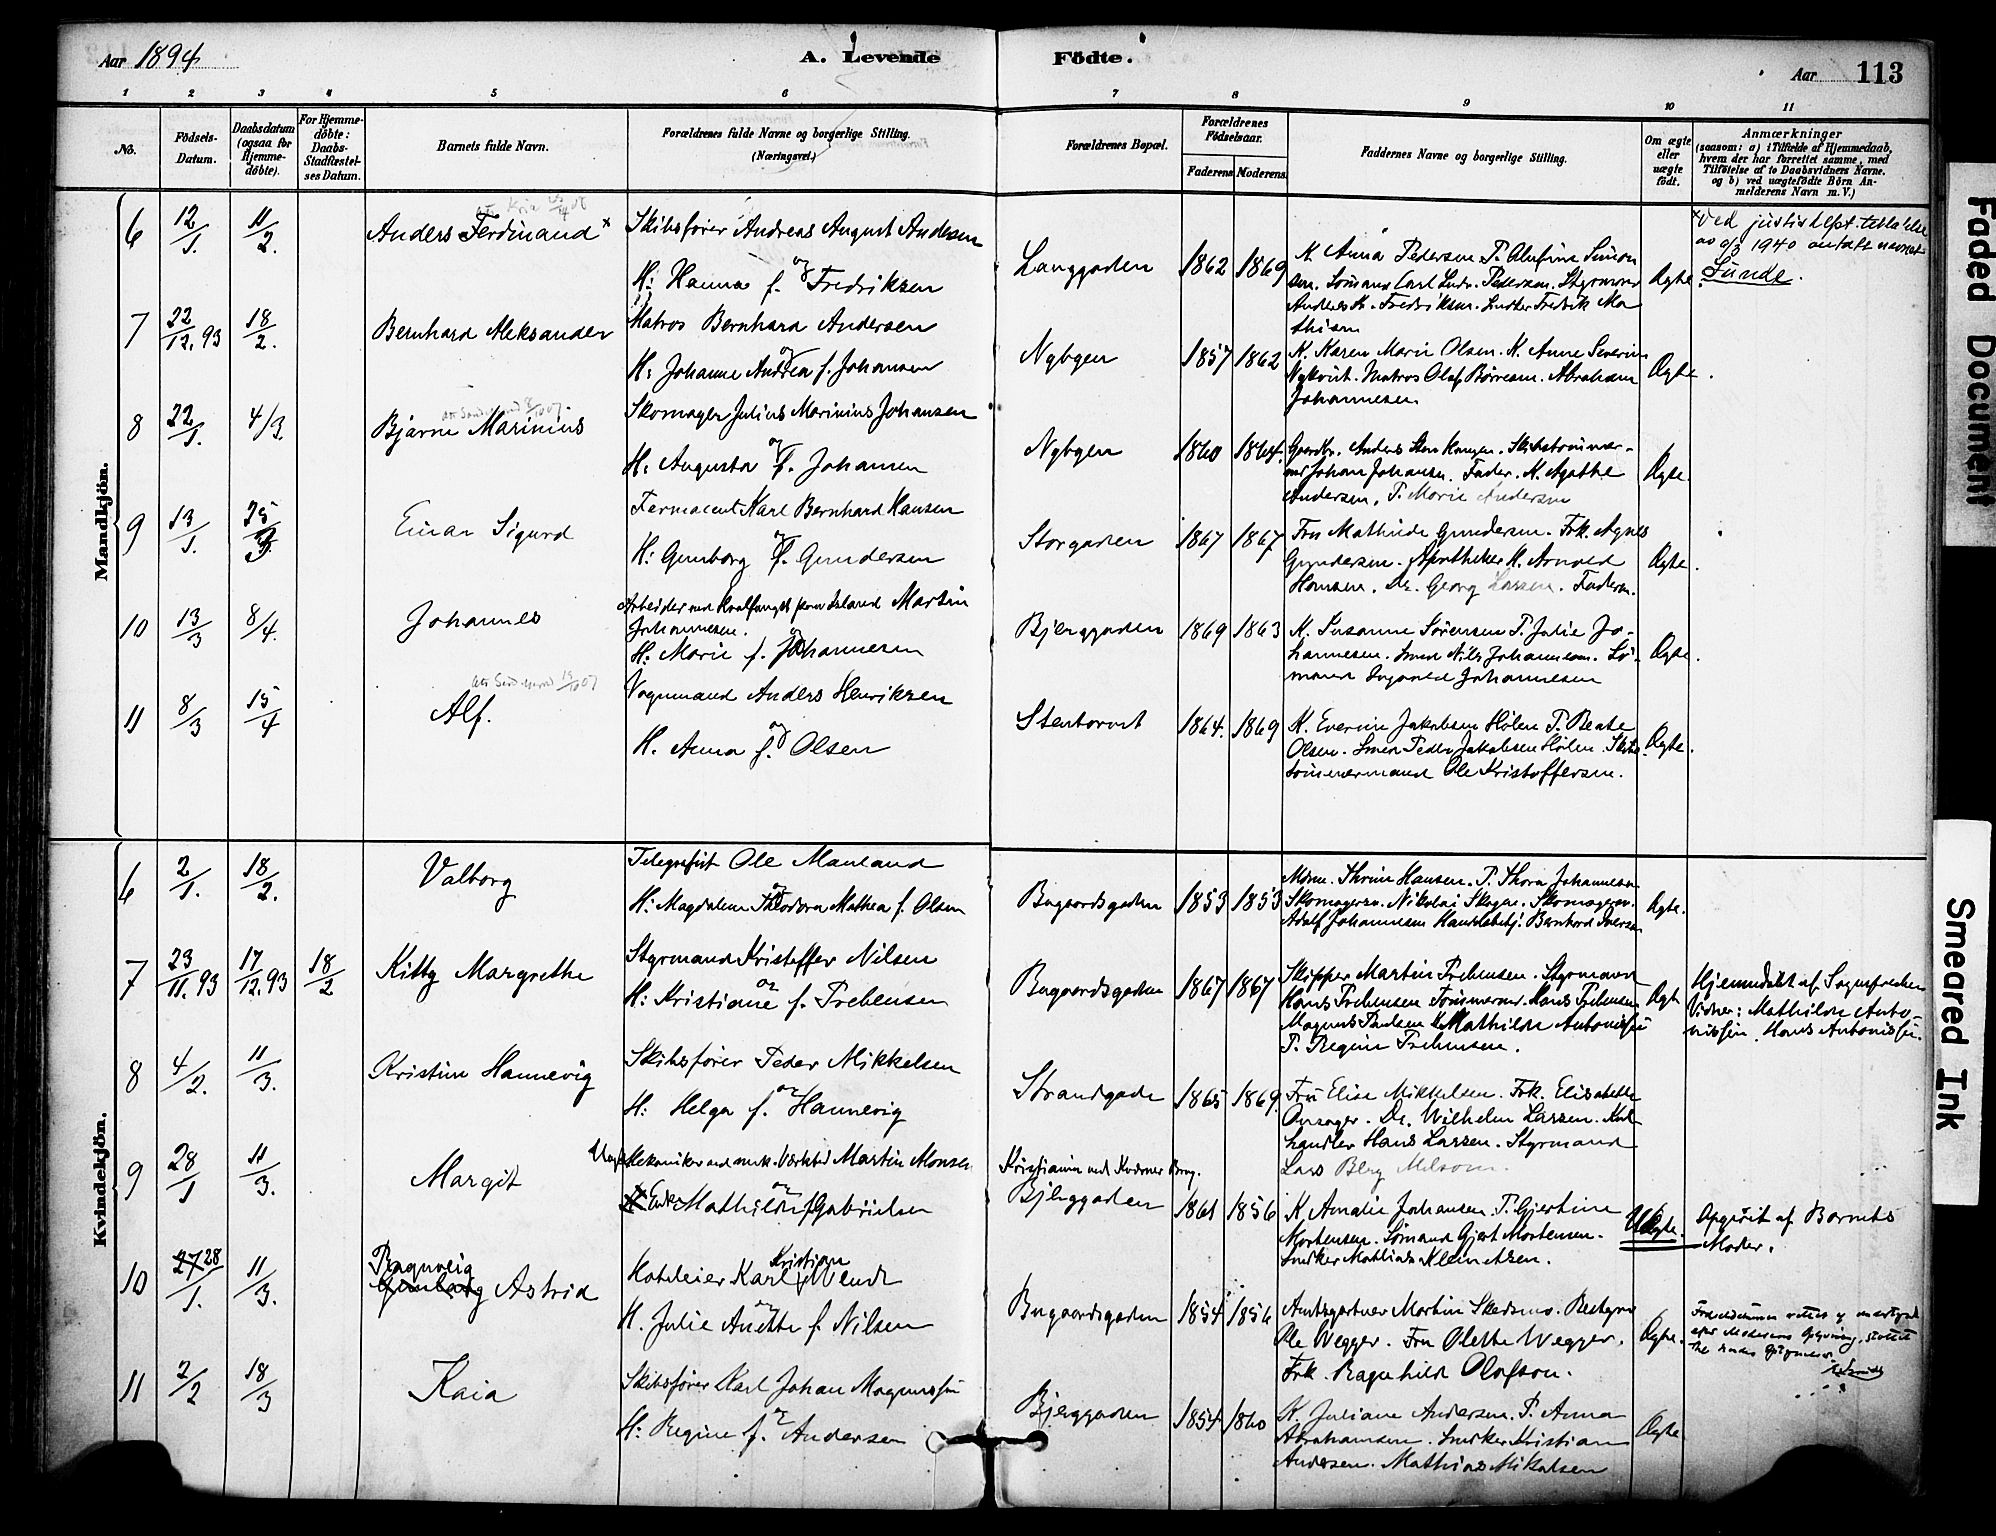 Aar 1894
A. Levende Födte.
Aar 113
1 2 3 4 5 6 7 8 9 10 11
No.
Födsels-Datum.
Daabsdatum (ogsaa for Hjemme-döbte).
For Hjemme-döbte: Daabs-Stadfæstel-ses Datum.
Barnets fulde Navn.
Forældrenes fulde Navne og borgerlige Stilling. (Næringsvei.)
Forældrenes Bopæl.
Forældrenes Födselsaar.
Faderens Moderens
Faddernes Navne og borgerlige Stilling.
Om ægte eller uægte födt.
Anmærkninger
(saasom: a) i Tilfælde af Hjemmedaab,
hvem der har forrettet samme, med
Tilföielse af to Daabsvidners Navne.
og b) ved uægtefödte Börn An-
melderens Navn m. V.)
Mandkjön.
6 12/1. 11/2. Anders Ferdinand x
Skibsfører Andreas August Andersen
og
H: Hanna f. Fredriksen
Langgaden 1862 1869
K. Anna Pedersen P. Olufine Simon
sen. Sømand Carl Ludv. Pedersen. Styrmand
Andreas M. Fredriksen. Snedker Fredrik Ma
thisen
Ægte.
x Ved justisdept. tilladelse
av 9/3 1940 antatt navnet
Sunde.
7 22/12.93 18/2. Bernhard Aleksander
Matros Bernhard Andersen
og
H: Johanne Andrea f. Johansen
Nybyen 1857 1862
K. Karen Marie Olsen. K. Anne Severin
Nykvist. Matros Olaf Børresen. Abraham
Johannesen
Ægte.
8 22/1. 4/3. Bjarne Marinius
Skomager Julius Marinius Johansen
og
H: Augusta f. Johansen
Nybyen 1860 1864.
Johan Johansen. Fader. K. Agathe
Andersen. P. Marie Andersen
Ægte.
9 13/1. 25/3 Einar Sigurd
Farmaceut Karl Bernhard Hansen
og
H: Gunborg f. Gundersen
Storgaden 1867 1867
Fru Mathilde Gundersen. Frk. Agnes
Gundersen. Apotheker H. Arnold
Hansen. Dr. Georg Larsen. Faderen.
Ægte.
10 13/3 8/4. Johannes
Arbeider ved Hvalfangst paa Island Martin
Johannesen.
og
H: Marie f. Johannesen
Bjerggaden 1869 1863
K. Susanne Sørensen P. Julie Jo-
hannesen. Smed Nils Johannesen. Sø-
mand Ingvald Johannesen
Ægte.
11 8/3 15/4 Alf.
Vognmand Anders Henriksen
og
H. Anna f. Olsen
Stentorvet 1864. 1869
K. Everine Jakobsen Hølen P. Beate
Olsen. Smed Peder Jakobsen Hølen. Skibs-
tømmermand Ole Kristoffersen.
Ægte.
Kvindekjön.
6 2/1. 18/2. Valborg
Telegrafist Ole Mauland
og
H: Magdalene Theodora Mathea f. Olsen
Bugaardsgaden 1853 1853
Moren. Thrine Hansen. P. Thora Johannesen
Skomagersv. Nikolai Skogen. Skomagersv.
Adolf Johannesen Handelsbetj. Bernhard Iversen
Ægte.
7 23/11.93 17/12.93 18/2 Kitty Margrethe
Styrmand Kristoffer Nilsen
og
H: Kristiane f. Trebensen
Bugaardsgaden 1867 1867
Skipper Martin Trebensen. Styrmand
Hans Trebensen Tømmermd. Hans Trebensen
Magnus Paulsen K. Mathilde Antonissen
P. Regine Trebensen.
Ægte
Hjemmedøbt af Sognepresten
Vidner: Mathilde Anto-
nissen. Hans Antonissen.
8 4/2. 11/3. Kristine Hannevig
Skibsfører Peder Mikkelsen
og
H: Helga f. Hannevig
Strandgade 1865 1869.
Fru Elise Mikkelsen. Frk. Elisabeth
Onsager. Dr. Wilhelm Larsen. Kul-
handler Hans Larsen. Styrmand
Lars Berg Melsom.
9 28/1 11/3. Margit
Ungk. Mekaniker ved mek. Værksted Martin Monsen
og
Enke Mathilde f. Gabrielsen
Kristiania ved Kværner Brug.
Bjerggaden 1861 1856
K Amalie Johansen. P. Gjertine
Mortensen. Sømand Gjert Mortensen.
Snedker Mathias Kleinetsen.
Uægte.
Opgivet af Barnets
Moder.
10 27 28/1. 11/3. Ragnveig
Gunborg Astrid
Hoteleier Karl Kristian Wendt
og
H. Julie Anette f. Nilsen
Bugaardsgaden 1854 1856
Amtsgartner Martin Skedsmo. Bestyrer
Ole Wegger. Fru Olette Wegger.
Frk. Ragnhild Olafson.
Ægte.
11 2/2 18/3 Kaia
Skibsfører Karl Johan Magnussen
og
H: Regine f. Andersen
Bjerggaden 1854 1860
K. Juliane Andersen. P. Anna
Abrahamsen. Snedker Kristian
Andersen. Mathias Mikalsen
Ægte
Faded Document
Smeared Ink